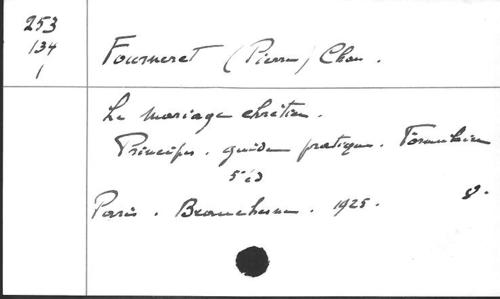 253
134
1
Fourneret (Pierre) Chan.
Le mariage chrétien.
Principes. guide pratique. Formulaire
5e éd
Paris. Beauchesne. 1925. 8°.